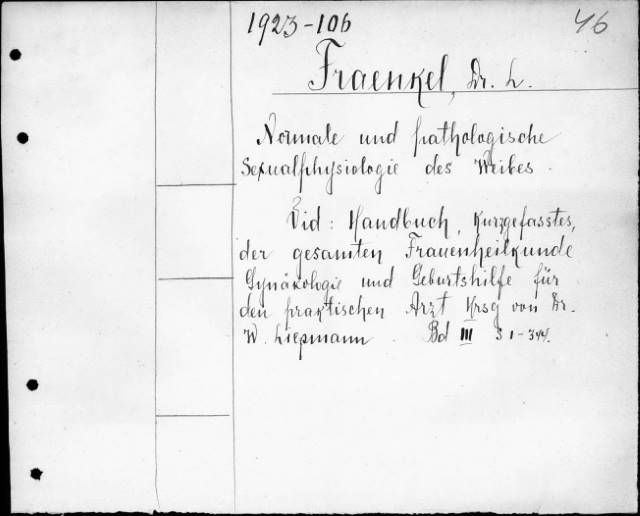 1923-106 46
Fraenkel, Dr. L.
Normale und pathologische
Sexualphysiologie des Weibes.
Vid: Handbuch, Kurzgefasstes,
der gesamten Frauenheilkunde
Gynäkologie und Geburtshilfe für
den praktischen Arzt Hrsg von Dr.
W. Liepmann. Bd III S 1-344.